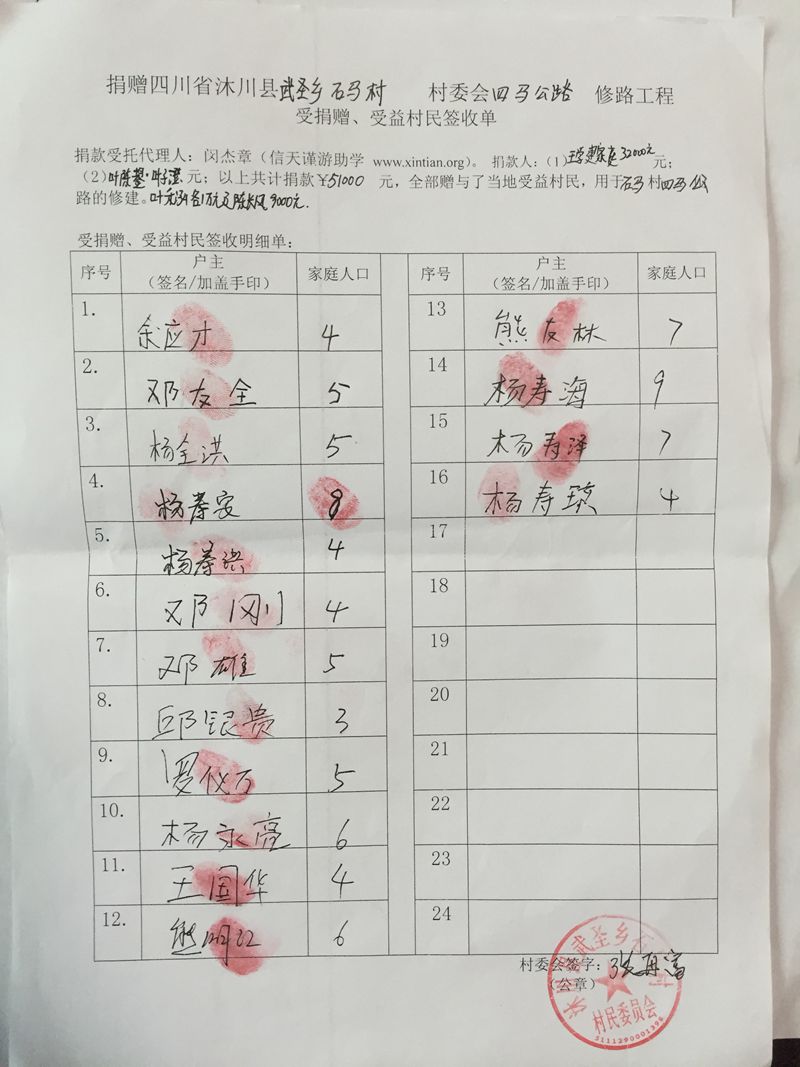 捐赠四川省沐川县武圣乡石马村 村委会四马公路 修路工程
受捐赠、受益村民签收单
捐款受托代理人：闵杰章（信天谨游助学 www.xintian.org）。 捐款人：（1）32000元 元；
（2） 元；以上共计捐款￥51000 元，全部赠与了当地受益村民，用于石马村四马公
路的修建。9000元.
受捐赠、受益村民签收明细单：
序号 户主 （签名/加盖手印） 家庭人口 序号 户主 （签名/加盖手印） 家庭人口
1. 余应才 4 13 熊友林 7
2. 邓友全 5 14 杨寿海 9
3. 杨全洪 5 15 杨寿泽 7
4. 杨寿安 8 16 杨寿 4
5. 杨寿洪 4 17
6. 邓刚 4 18
7. 邓雄 5 19
8. 邱银贵 3 20
9. 罗仪万 5 21
10. 杨永亮 6 22
11. 王国华 4 23
12. 熊明江 6 24
村委会签字：张再富
（公章）
武圣乡石
村民委员会